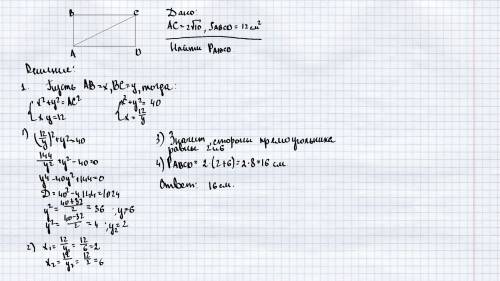 B C
A D
Дано:
AC = 2√10, SABCD = 12 см²
Найти PABCD
Решение:
1. Пусть AB = x, BC = y, тогда:
{ x² + y² = AC²
x y = 12
{ x² + y² = 40
x = 12/y
1) (12/y)² + y² = 40
144/y² + y² - 40 = 0
y⁴ - 40y² + 144 = 0
D = 40² - 4·144 = 1024
y² = (40+32)/2 = 36 ; y = 6
y² = (40-32)/2 = 4 ; y₂ = 2
2) x₁ = 12/y₁ = 12/6 = 2
x₂ = 12/y₂ = 12/2 = 6
3) Значит, стороны прямоугольника
равны 2 и 6
4) PABCD = 2·(2+6) = 2·8 = 16 см
Ответ: 16 см.